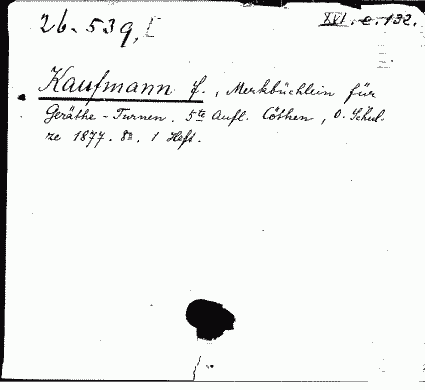 26.539, I
XXI. e. 132.
Kaufmann f., Merkbüchlein für
Geräthe-Turnen. 5te Aufl. Cöthen, O. Schul-
ze 1877. 8°. 1 Heft.